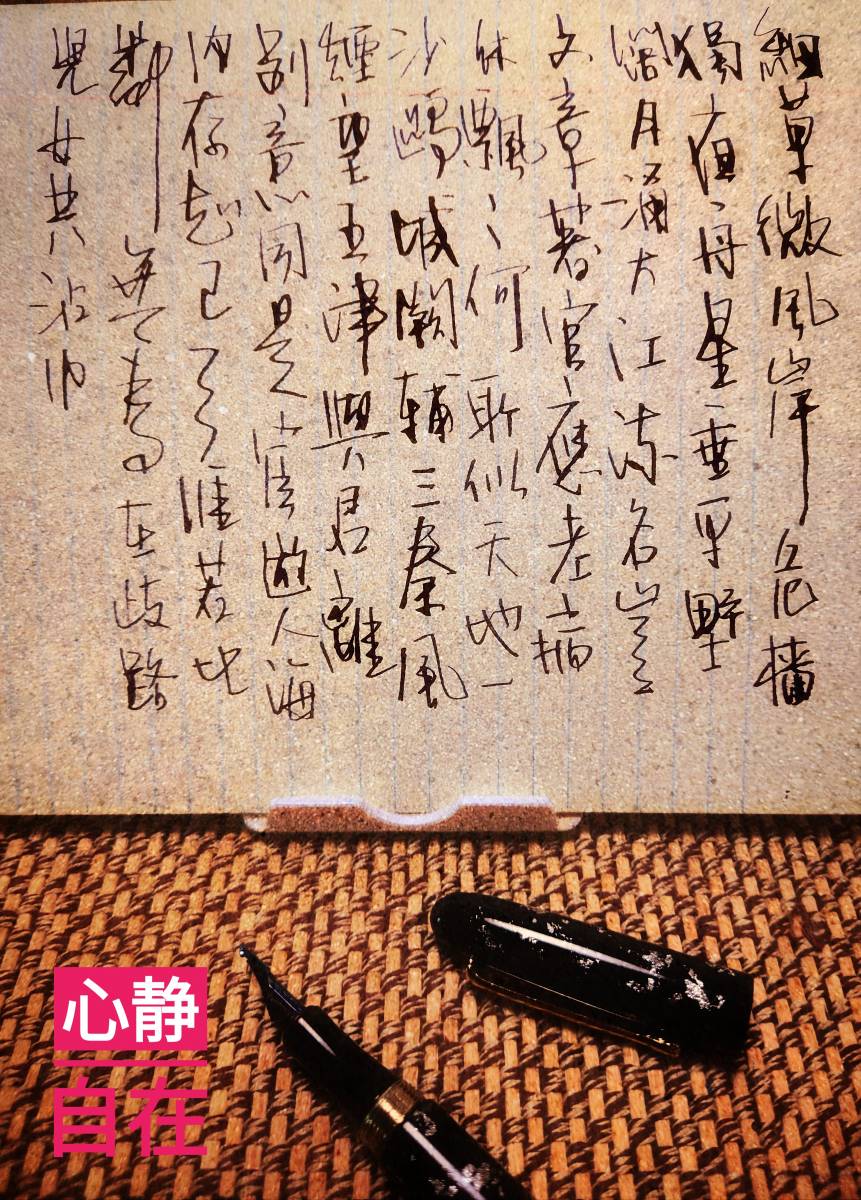 細草微風岸危檣
獨夜舟星垂平野
闊月涌大江流名豈
文章著官應老病
休飄〻何所似天地一
沙鷗城闕輔三秦風
煙望五津與君離
別意同是宦遊人海
内存知己天涯若比
鄰無為在歧路
兒女共沾巾
心静
自在